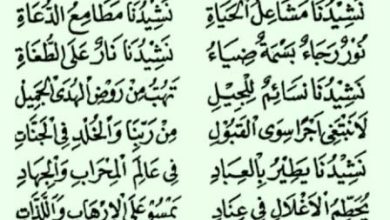 نَشِيْدُنَا مَشَاعِلُ الْحَيَاةِ نَشِيْدُنَا مَطَامِعُ الدُّعَاةِ
نُوْرٌ رَجَاءٌ بَسْمَةٌ ضِيَاءُ نَشِيْدُنَا نَارٌ عَلَى الطُّغَاةِ
نَشِيْدُنَا نَسَائِمٌ لِلْجِيْلِ تَهُبُّ مِنْ رَوْضِ الْهُدَى الْجَمِيْلِ
لَا نَبْتَغِى اَجْرًا سِوَى الْقَبُوْلِ مِنْ رَبِّنَا وَالْخُلْدِ فِى الْجَنَّاتِ
نَشِيْدُنَا يَطِيْرُ بِالْعِبَادِ فِى عَالَمِ الْمِحْرَابِ وَالْجِهَادِ
يُحَطِّمُ الْاَغْلَالَ فِى عِنَادِ يَسْمُوْ عَلَى الْاِرْهَابِ وَاللَّذَّاتِ